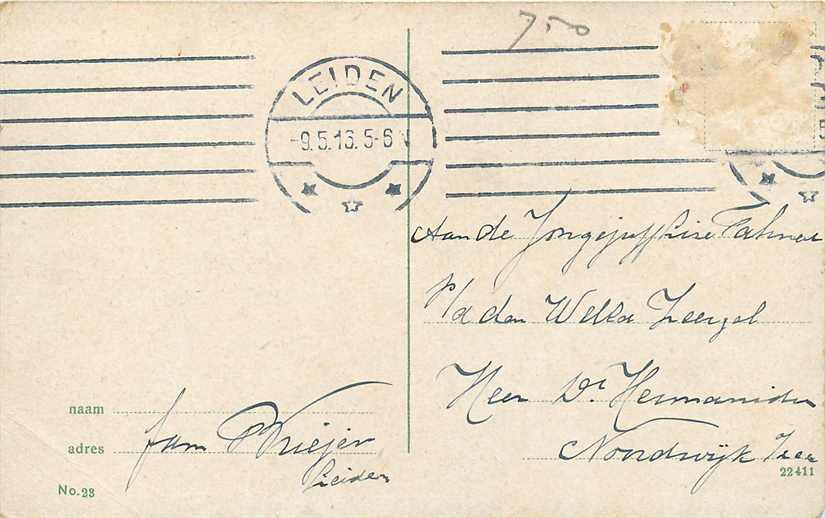 7,50
LEIDEN
-9.5.16. 5-6 N
Aan de Jongejuffr. Lise
p/a den WelEd Zeergel
Heer Dr Hermanides
Noordwijk Zee
naam
adres
fam
Leiden
No. 23
22411